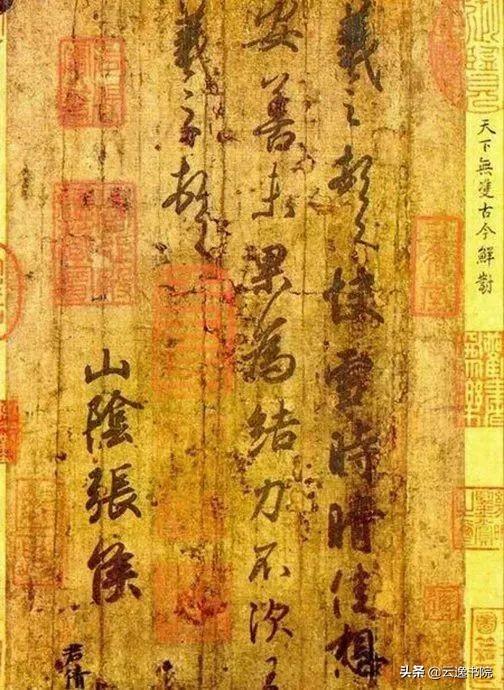 天下無雙古今鮮對
羲之頓首快雪時晴佳想
安善未果為結力不次王
羲之頓首
山陰張侯
君倩
头条 @云逸书院